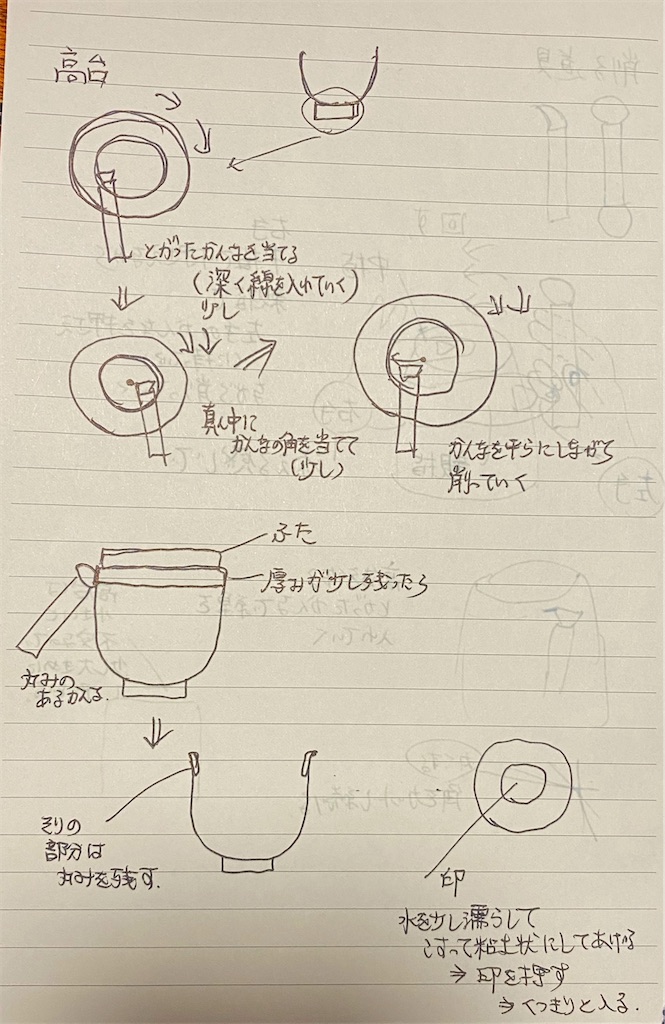 高台
とがったかんなを当てる
(深く線を入れていく)
少し
真ん中に
かんなの角を当てて
(少し)
かんなを平らにしながら
削っていく
ふた
厚みが少し残ったら
丸みの
あるかんな.
そりの
部分は
丸みを残す.
印
水を少し濡らして
こすって粘土状にしてあげる
⇒ 印を押す
⇒ くっきりと入る.
削る道具